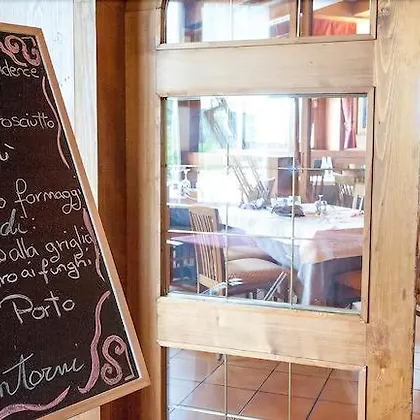 rosciutto
ù
formaggi
di
alla griglia
ai funghi
Porto
ntorni